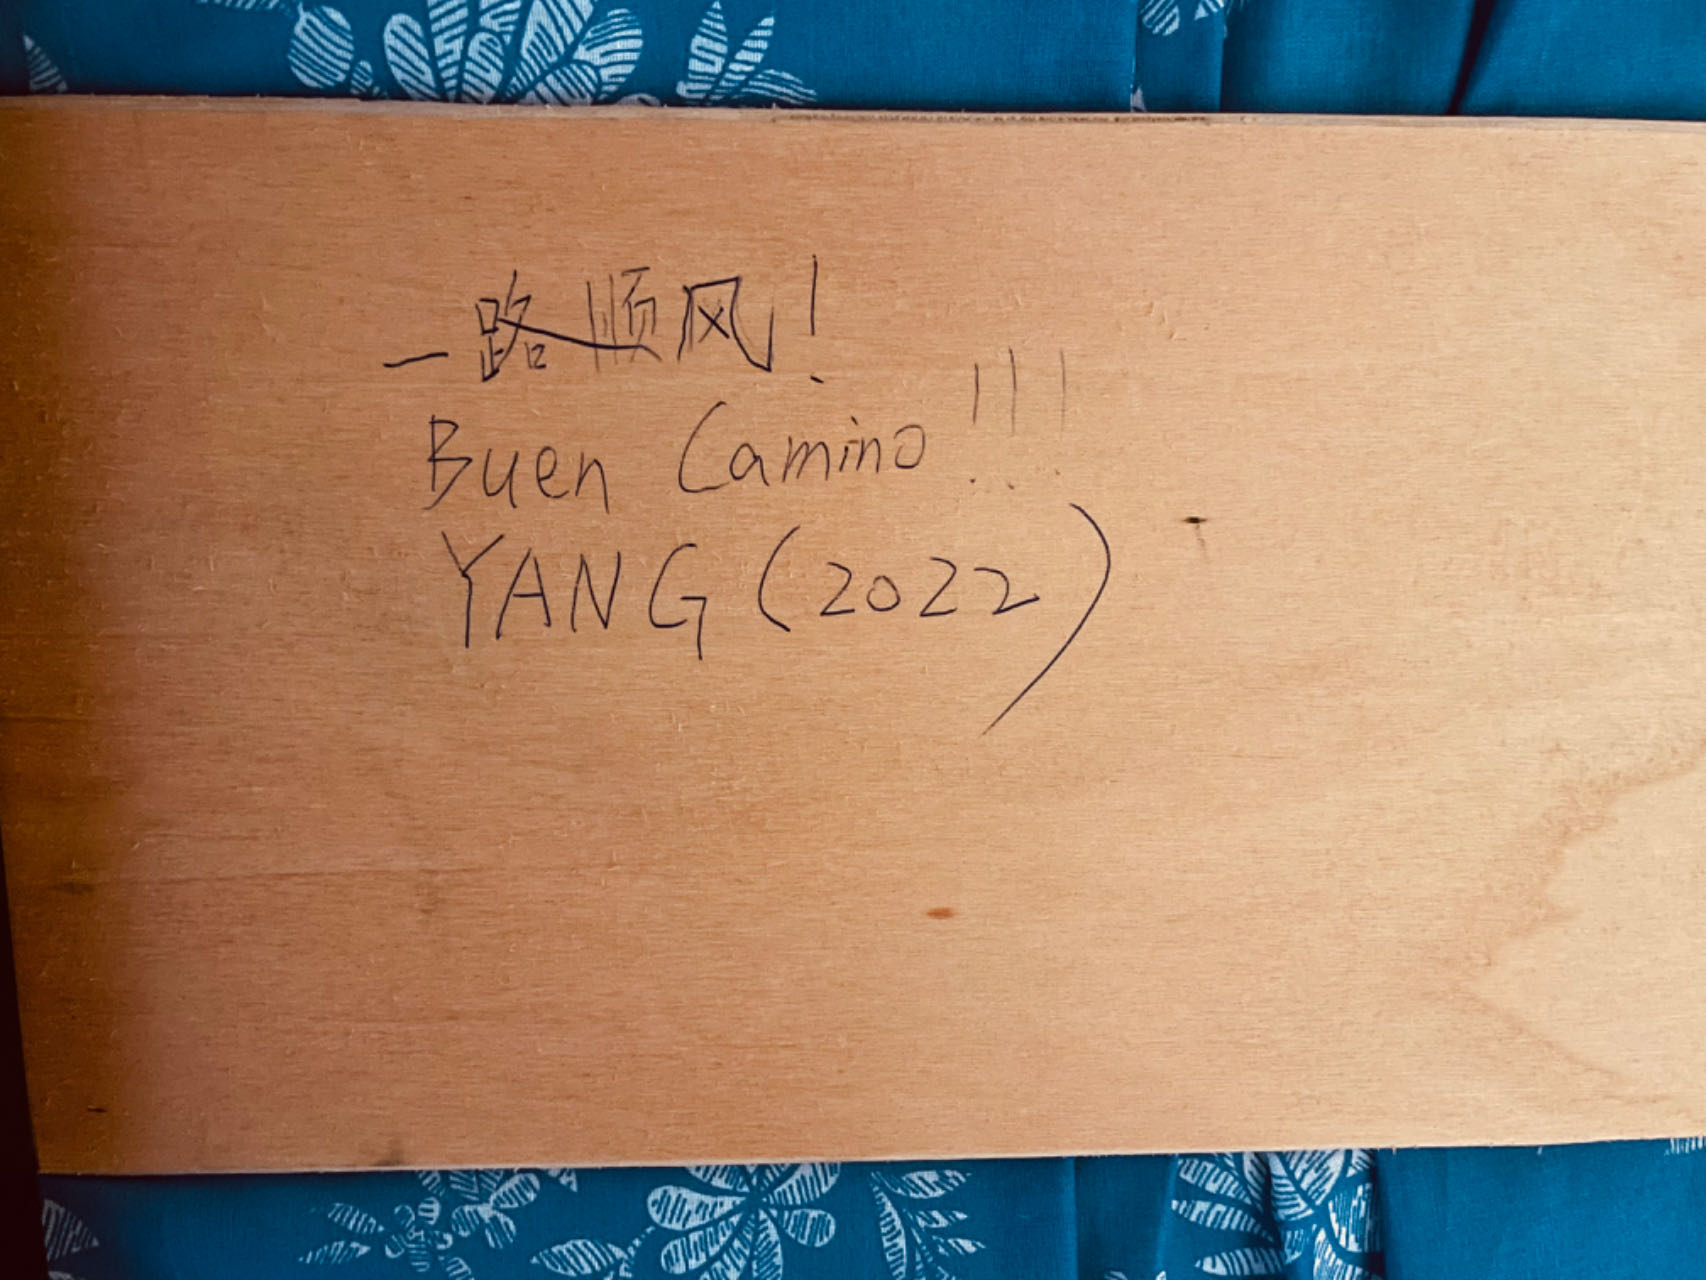 一路顺风!
Buen Camino!!!
YANG (2022)